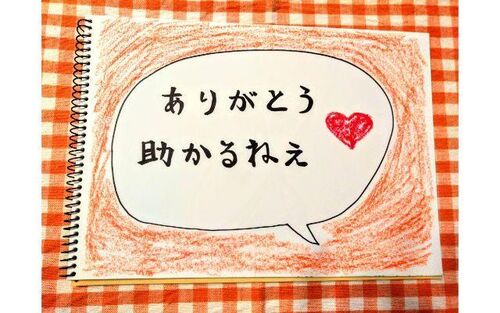 ありがとう
助かるねぇ